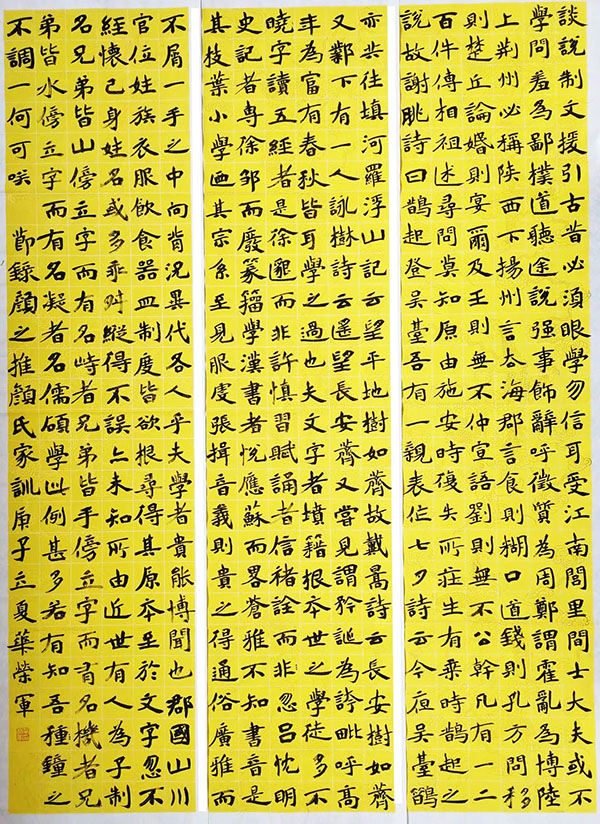 談說制文援引古昔必須眼學勿信耳受江南閭里間士大夫或不
學問羞為鄙樸道聽途說强事飾辭呼徵質為周鄭謂霍亂為博陸
上荆州必稱陝西下揚州言去海郡言食則糊口道錢則孔方問移
則楚丘論婚則宴爾及王則無不仲宣語劉則無不公幹凡有一二
百件傳相祖述尋問莫知原由施安時復失所莊生有乘時鵲起之
說故謝朓詩曰鵲起登吳臺吾有一親表作七夕詩云今夜吳臺鵲
亦共往填河羅浮山記云望平地樹如薺故戴暠詩云長安樹如薺
又鄴下有一人詠樹詩云遥望長安薺又嘗見謂矜誕為誇毗呼高
年為富有春秋皆耳學之過也夫文字者墳籍根本世之學徒多不
曉字讀五經者是徐邈而非許慎習賦誦者信褚詮而非忽呂忱明
史記者專徐鄒而廢篆籀學漢書者悅應蘇而畧蒼雅不知書音是
其枝葉小學迺其宗系至見服虔張揖音義則貴之得通俗廣雅而
不屑一手之中向背況異代各人乎夫學者貴能博聞也郡國山川
官位姓族衣服飲食器皿制度皆欲根尋得其原本至於文字忽不
經懷己身姓名或多乖舛縱得不誤亦未知所由近世有人為子制
名兄弟皆山傍立字而有名峙者兄弟皆手傍立字而有名機者兄
弟皆水傍立字而有名凝者名儒碩學此例甚多若有知吾種鐘之
不調一何可咲 節錄顏之推顏氏家訓庚子立夏葉榮軍